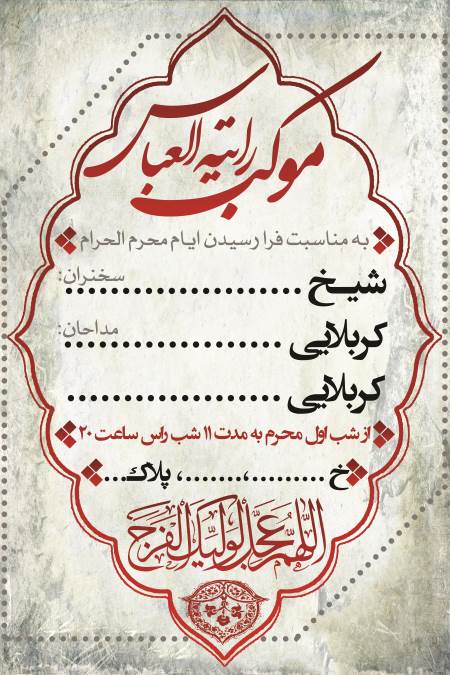 موکب رایة العباس
به مناسبت فرا رسیدن ایام محرم الحرام
سخنران:
شیخ ......................
مداحان:
کربلایی ...................
کربلایی ...................
از شب اول محرم به مدت ۱۱ شب راس ساعت ۲۰
خ ..........،........، پلاک...
اللهم عجل لولیک الفرج